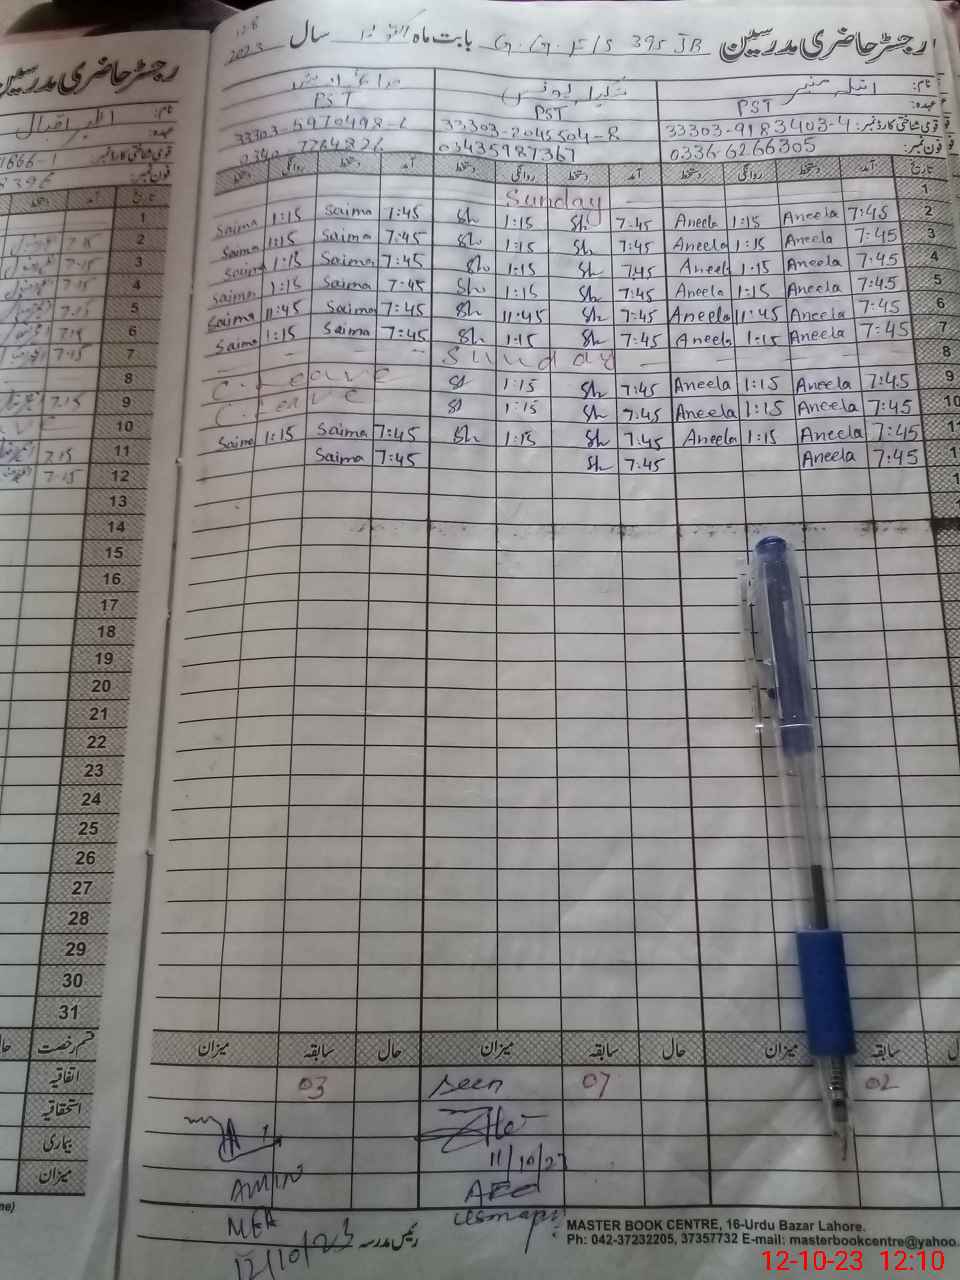 رجسٹر حاضری مدرسین G.G.E/S 395 JB بابت ماہ اکتوبر سال 2023
رجسٹر حاضری مدرسین
نام:
عہدہ: PST PST PST
قومی شناختی کارڈ نمبر: 33303-9183403-4 33303-2045504-8
فون نمبر: 0336-6266305 03435987367
تاریخ آمد دستخط روانگی دستخط آمد دستخط روانگی دستخط آمد دستخط روانگی دستخط
1 Sunday
2 7:45 Aneela 1:15 Aneela 7:45 Sh 1:15 Sh 7:45 Saima 1:15 Saima
3 7:45 Aneela 1:15 Aneela 7:45 Sh 1:15 Sh 7:45 Saima 1:15 Saima
4 7:45 Aneela 1:15 Aneela 7:45 Sh 1:15 Sh 7:45 Saima 1:15 Saima
5 7:45 Aneela 1:15 Aneela 7:45 Sh 1:15 Sh 7:45 Saima 1:15 Saima
6 7:45 Aneela 11:45 Aneela 7:45 Sh 11:45 Sh 7:45 Saima 11:45 Saima
7 7:45 Aneela 1:15 Aneela 7:45 Sh 1:15 Sh 7:45 Saima 1:15 Saima
8 Sunday
9 7:45 Aneela 1:15 Aneela 7:45 Sh 1:15 Sh C. Leave
10 7:45 Aneela 1:15 Aneela 7:45 Sh 1:15 Sh C. Leave
7:45 Aneela 1:15 Aneela 7:45 Sh 1:15 Sh 7:45 Saima 1:15 Saima
7:45 Aneela 7:45 Sh 7:45 Saima
نام: اظہر اقبال
عہدہ:
قومی شناختی کارڈ نمبر:
فون نمبر:
تاریخ آمد دستخط
1
2 7:15
3 7:15
4 7:15
5 7:15
6 7:15
7 7:15
8
9 7:15
10
11 7:15
12 7:15
13
14
15
16
17
18
19
20
21
22
23
24
25
26
27
28
29
30
31
قسم رخصت
اتفاقیہ
استحقاقیہ
بیماری
میزان
سابقہ میزان حال سابقہ میزان حال سابقہ میزان
02 07 seen 03
11/10/23
AEO
AMIN
MEA
12/10/23
رئیس مدرسہ
MASTER BOOK CENTRE, 16-Urdu Bazar Lahore.
Ph: 042-37232205, 37357732 E-mail: masterbookcentre@yahoo.
12-10-23 12:10